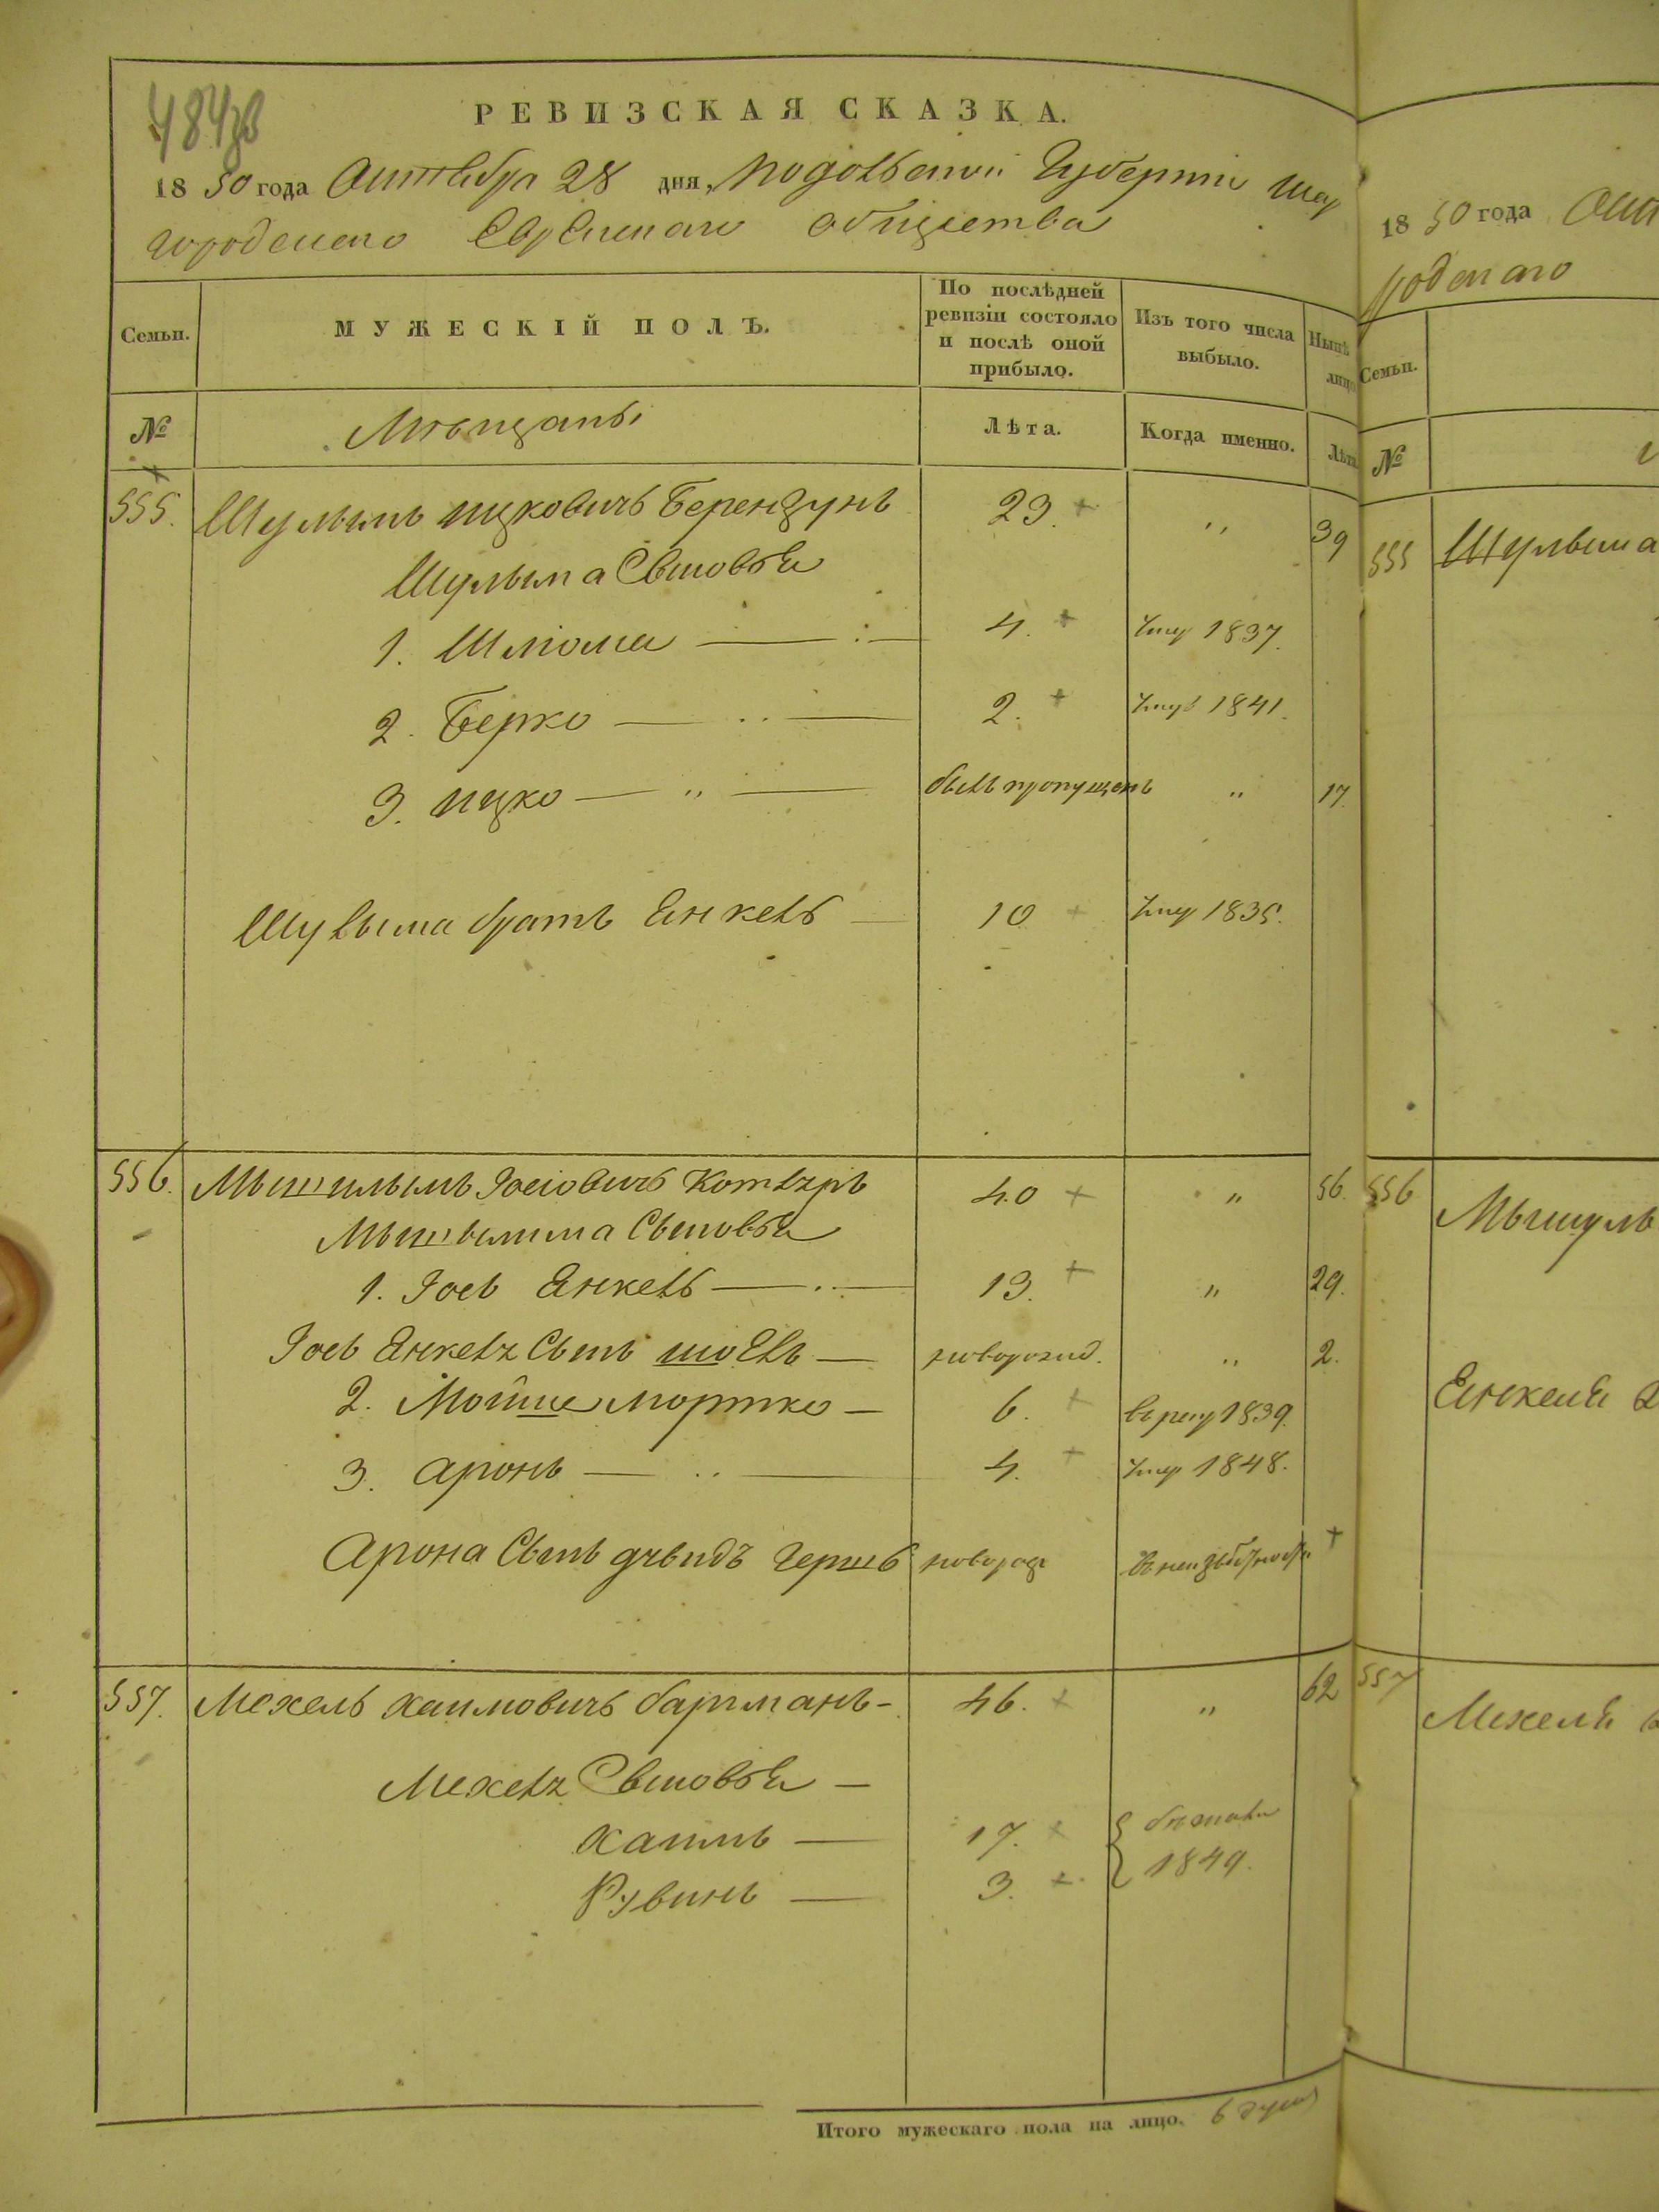 484
РЕВИЗСКАЯ СКАЗКА.
1850 года Октября 28 дня, Подольской Губернии Шар
городского Еврейского общества
Семьи.
МУЖЕСКІЙ ПОЛЪ.
По послѣдней ревизіи состояло и послѣ оной прибыло.
Изъ того числа выбыло.
Нынѣ лицо
№
Мѣщаны
Лѣта.
Когда именно.
Лѣта
555. Шулымъ Ицковичъ Беренгунъ 23. " 39
Шулыма Сыновья
1. Шліома 4. умер 1837.
2. Берко 2. умер 1841.
3. Ицко " былъ пропущенъ " 17
Шулыма братъ Янкель 10 умер 1835.
556. Іосіовичъ 40 " 56.
Сыновья
1. Іось Янкель 13. " 29.
Іось Янкеля Сынъ новорожд. " 2.
2. Мойше Мортко 6. в рекр 1839.
3. Аронъ 4. умер 1848.
Арона Сынъ Гершъ новорож
557. Мехель Хаимовичъ Барманъ 46. " 62
Мехеля Сыновья
Хаимъ 17.
Рувинъ 3. 1849.
Итого мужескаго пола на лицо. 6 душ
1850 года Окт
родского
Семьи.
№
555 Шулыма
556 Мышуль
Янкеля
557 Мехеля